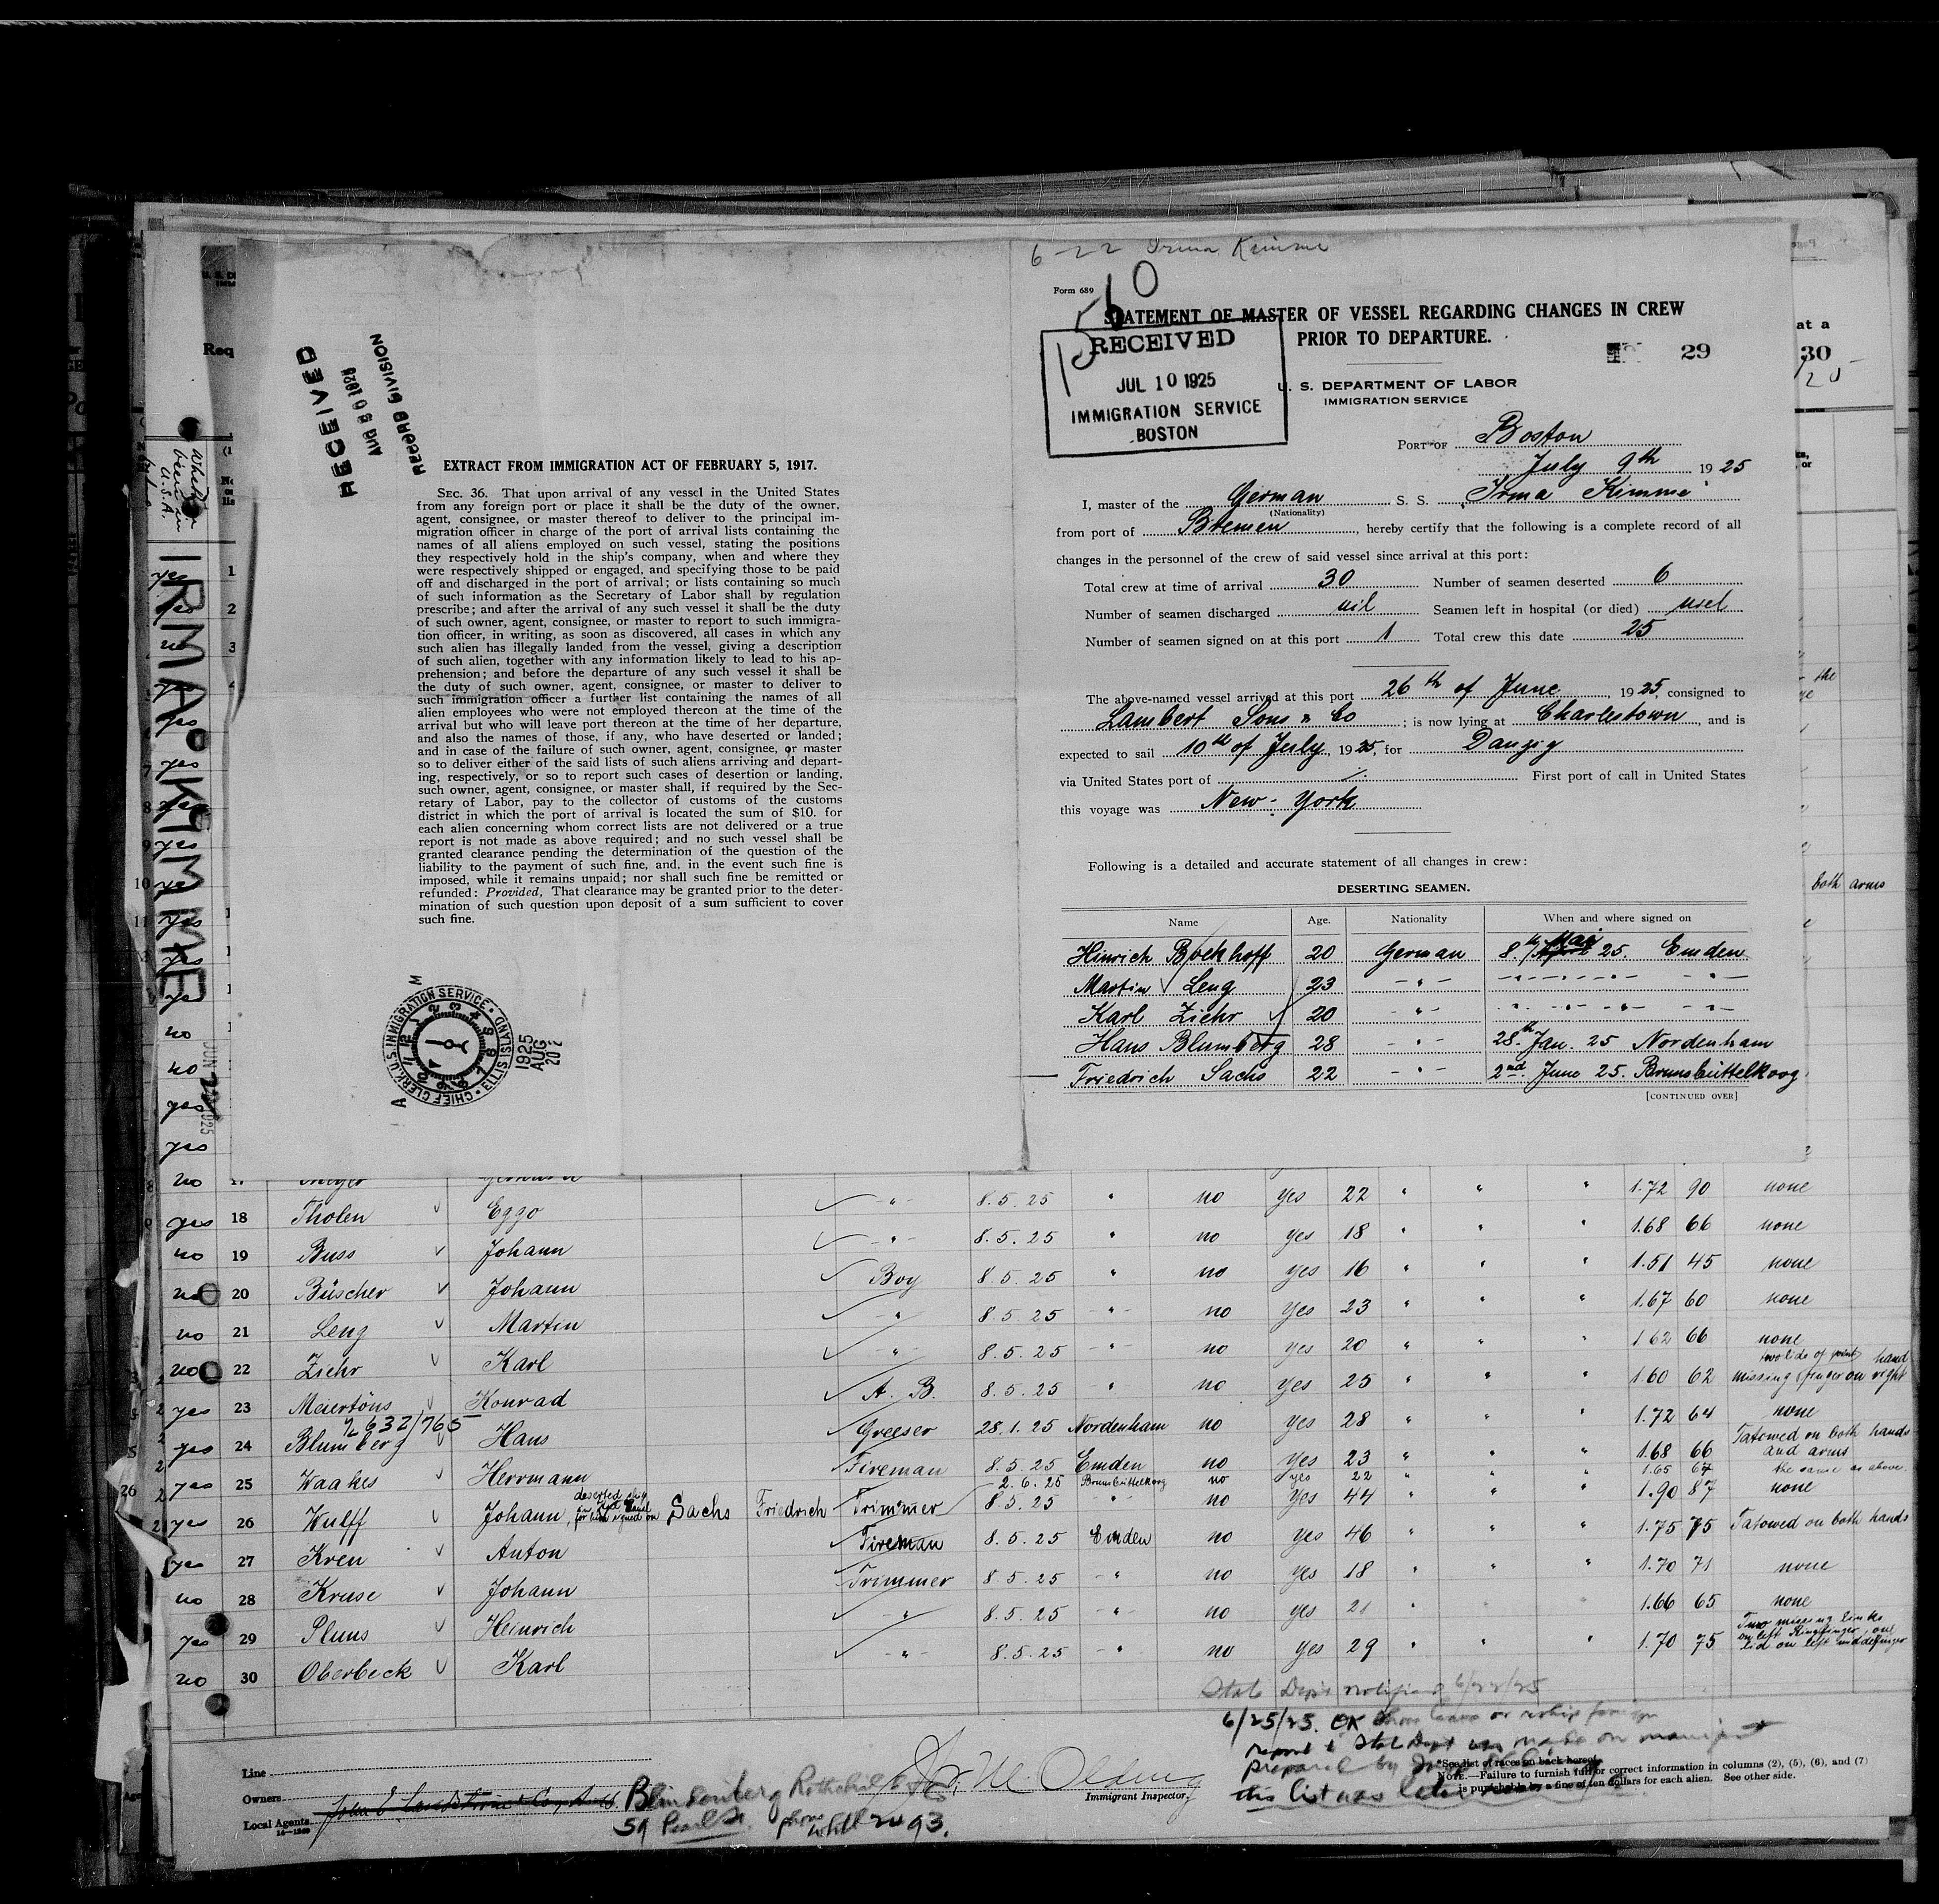 6-22 Irma Kimme
Form 689
STATEMENT OF MASTER OF VESSEL REGARDING CHANGES IN CREW
PRIOR TO DEPARTURE.
29
RECEIVED
JUL 10 1925
IMMIGRATION SERVICE
BOSTON
U. S. DEPARTMENT OF LABOR
IMMIGRATION SERVICE
PORT OF Boston
July 9th 1925
I, master of the German S. S. Irma Kimme
(Nationality)
from port of Bremen, hereby certify that the following is a complete record of all
changes in the personnel of the crew of said vessel since arrival at this port:
Total crew at time of arrival 30 Number of seamen deserted 6
Number of seamen discharged nil Seamen left in hospital (or died)
Number of seamen signed on at this port 1 Total crew this date 25
The above-named vessel arrived at this port 26th of June, 1925, consigned to
Lambert Sons & Co; is now lying at Charlestown, and is
expected to sail 10th of July, 1925, for Danzig
via United States port of First port of call in United States
this voyage was New-York
Following is a detailed and accurate statement of all changes in crew:
DESERTING SEAMEN.
Name Age. Nationality When and where signed on
Hinrich Boekhoff 20 German 8th Mai 25. Emden
Martin Leng 23 - " -
Karl Ziehr 20 - " -
Hans Blumberg 28 - " - 28th Jan. 25 Nordenham
Friedrich Sachs 22 - " - 2nd June 25. Brunsbüttelkoog
[CONTINUED OVER]
RECEIVED
AUG 20 1925
RECORD DIVISION
EXTRACT FROM IMMIGRATION ACT OF FEBRUARY 5, 1917.
SEC. 36. That upon arrival of any vessel in the United States
from any foreign port or place it shall be the duty of the owner,
agent, consignee, or master thereof to deliver to the principal im-
migration officer in charge of the port of arrival lists containing the
names of all aliens employed on such vessel, stating the positions
they respectively hold in the ship's company, when and where they
were respectively shipped or engaged, and specifying those to be paid
off and discharged in the port of arrival; or lists containing so much
of such information as the Secretary of Labor shall by regulation
prescribe; and after the arrival of any such vessel it shall be the duty
of such owner, agent, consignee, or master to report to such immigra-
tion officer, in writing, as soon as discovered, all cases in which any
such alien has illegally landed from the vessel, giving a description
of such alien, together with any information likely to lead to his ap-
prehension; and before the departure of any such vessel it shall be
the duty of such owner, agent, consignee, or master to deliver to
such immigration officer a further list containing the names of all
alien employees who were not employed thereon at the time of the
arrival but who will leave port thereon at the time of her departure,
and also the names of those, if any, who have deserted or landed;
and in case of the failure of such owner, agent, consignee, or master
so to deliver either of the said lists of such aliens arriving and depart-
ing, respectively, or so to report such cases of desertion or landing,
such owner, agent, consignee, or master shall, if required by the Sec-
retary of Labor, pay to the collector of customs of the customs
district in which the port of arrival is located the sum of $10. for
each alien concerning whom correct lists are not delivered or a true
report is not made as above required; and no such vessel shall be
granted clearance pending the determination of the question of the
liability to the payment of such fine, and, in the event such fine is
imposed, while it remains unpaid; nor shall such fine be remitted or
refunded: Provided, That clearance may be granted prior to the deter-
mination of such question upon deposit of a sum sufficient to cover
such fine.
CHIEF CLERK, U.S. IMMIGRATION SERVICE, ELLIS ISLAND
1925 AUG 20
IRMA KIMME
30
both arms
yes 18 Tholen Eggo - " - 8.5.25 " no yes 22 " " " 1.72 90 none
no 19 Buss Johann - " - 8.5.25 " no yes 18 " " " 1.68 66 none
no 20 Büscher Johann Boy 8.5.25 " no yes 16 " " " 1.51 45 none
no 21 Leng Martin - " - 8.5.25 - " - no yes 23 " " " 1.67 60 none
no 22 Ziehr Karl - " - 8.5.25 - " - no yes 20 " " " 1.62 66 none
yes 23 Meiertöns Konrad A. B. 8.5.25 " no yes 25 " " " 1.60 62 missing finger on right hand
2632/765
yes 24 Blumberg Hans Greeser 28.1.25 Nordenham no yes 28 " " " 1.72 64 none
yes 25 Waakes Herrmann Fireman 8.5.25 Emden no yes 23 " " " 1.68 66 Tatowed on both hands and arms
2.6.25 Brunsbüttelkoog no yes 22 " " " 1.65 67 the same as above
yes 26 Wulff Johann, deserted ship for him signed on Sachs Friedrich Trimmer 8.5.25 - " - no yes 44 " " " 1.90 87 none
yes 27 Kren Anton Fireman 8.5.25 Emden no yes 46 " " " 1.75 75 Tatowed on both hands
no 28 Kruse Johann Trimmer 8.5.25 - " no yes 18 " " " 1.70 71 none
yes 29 Pluns Heinrich - " - 8.5.25 - " - no yes 21 " " " 1.66 65 none
no 30 Oberbeck Karl - " - 8.5.25 - " no yes 29 " " " 1.70 75 Two missing links on left Ringfinger, one on left middelfinger
State Dept notified 6/22/25
6/25/25. OK
report to State Dept was made on manifest
prepared by
this list was
Line
Owners
Local Agents
14-1240
59 Pearl St. phone Whtll 2093.
Immigrant Inspector.
*See list of races on back hereof.
NOTE.—Failure to furnish full or correct information in columns (2), (5), (6), and (7)
is punishable by a fine of ten dollars for each alien. See other side.